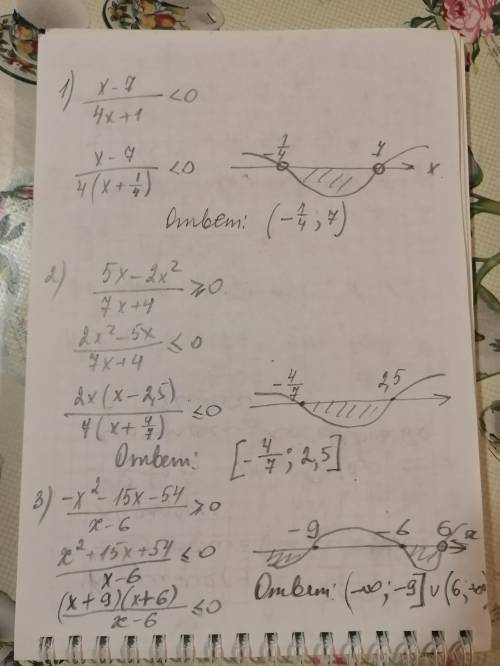 1) (x-7)/(4x+1) < 0
(x-7)/(4(x+1/4)) < 0
-1/4 7 x
Ответ: (-1/4; 7)
2) (5x-2x²)/(7x+4) ≥ 0
(2x²-5x)/(7x+4) ≤ 0
2x(x-2,5)/(7(x+4/7)) ≤ 0
-4/7 2,5
Ответ: [-4/7; 2,5]
3) (-x²-15x-54)/(x-6) ≥ 0
(x²+15x+54)/(x-6) ≤ 0
-9 -6 6 x
(x+9)(x+6)/(x-6) ≤ 0
Ответ: (-∞; -9] ∪ (6;